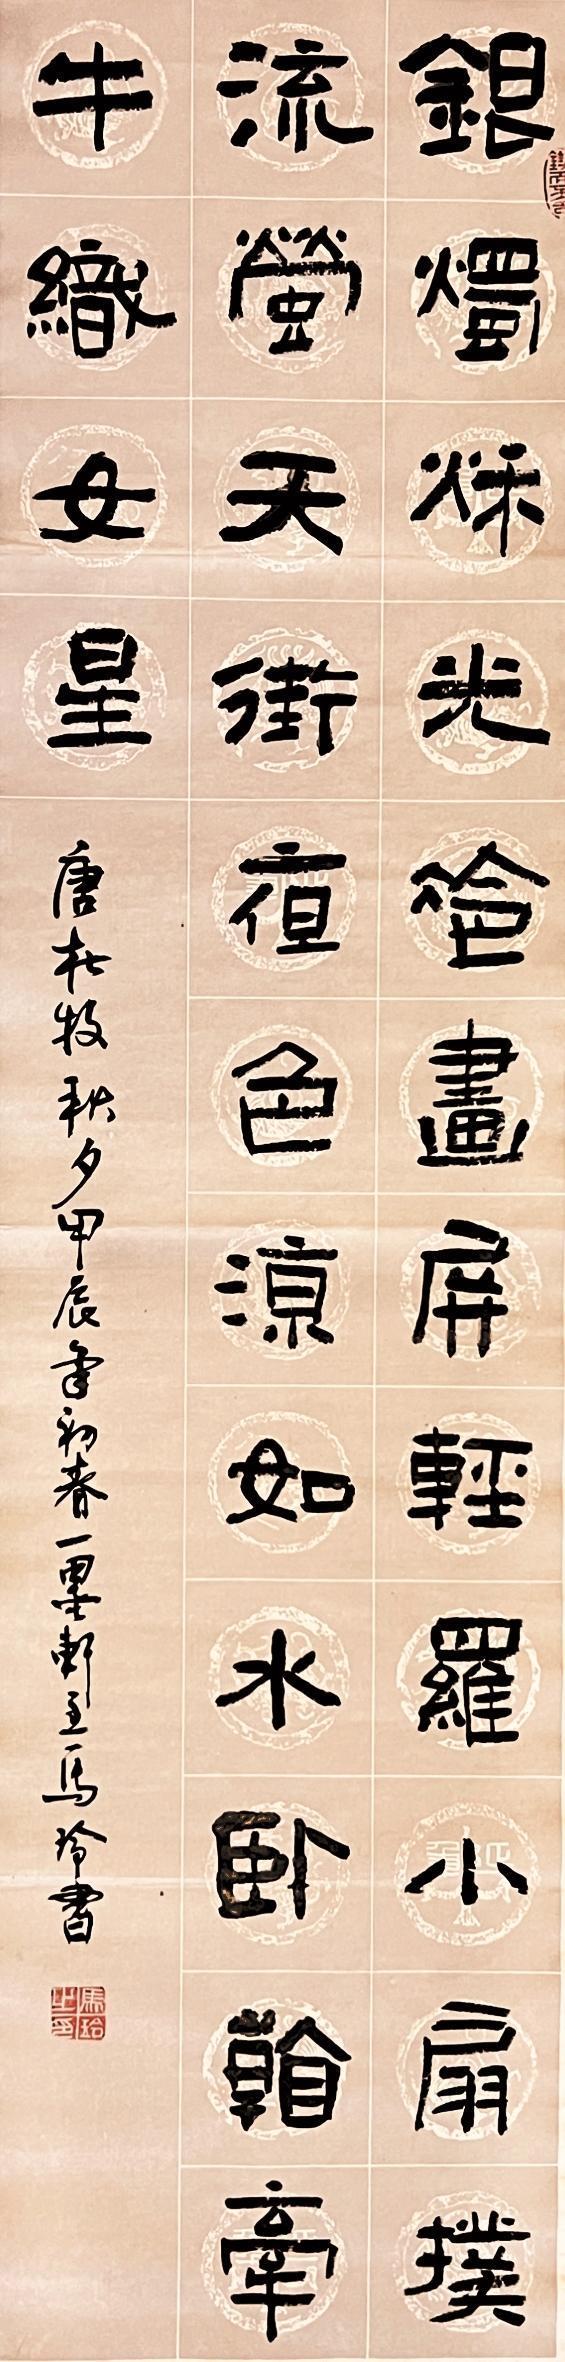 銀燭秋光冷畫屏輕羅小扇撲
流螢天街夜色涼如水卧看牽
牛織女星
唐杜牧秋夕甲辰年初春一墨軒主馬玲書
馬玲之印